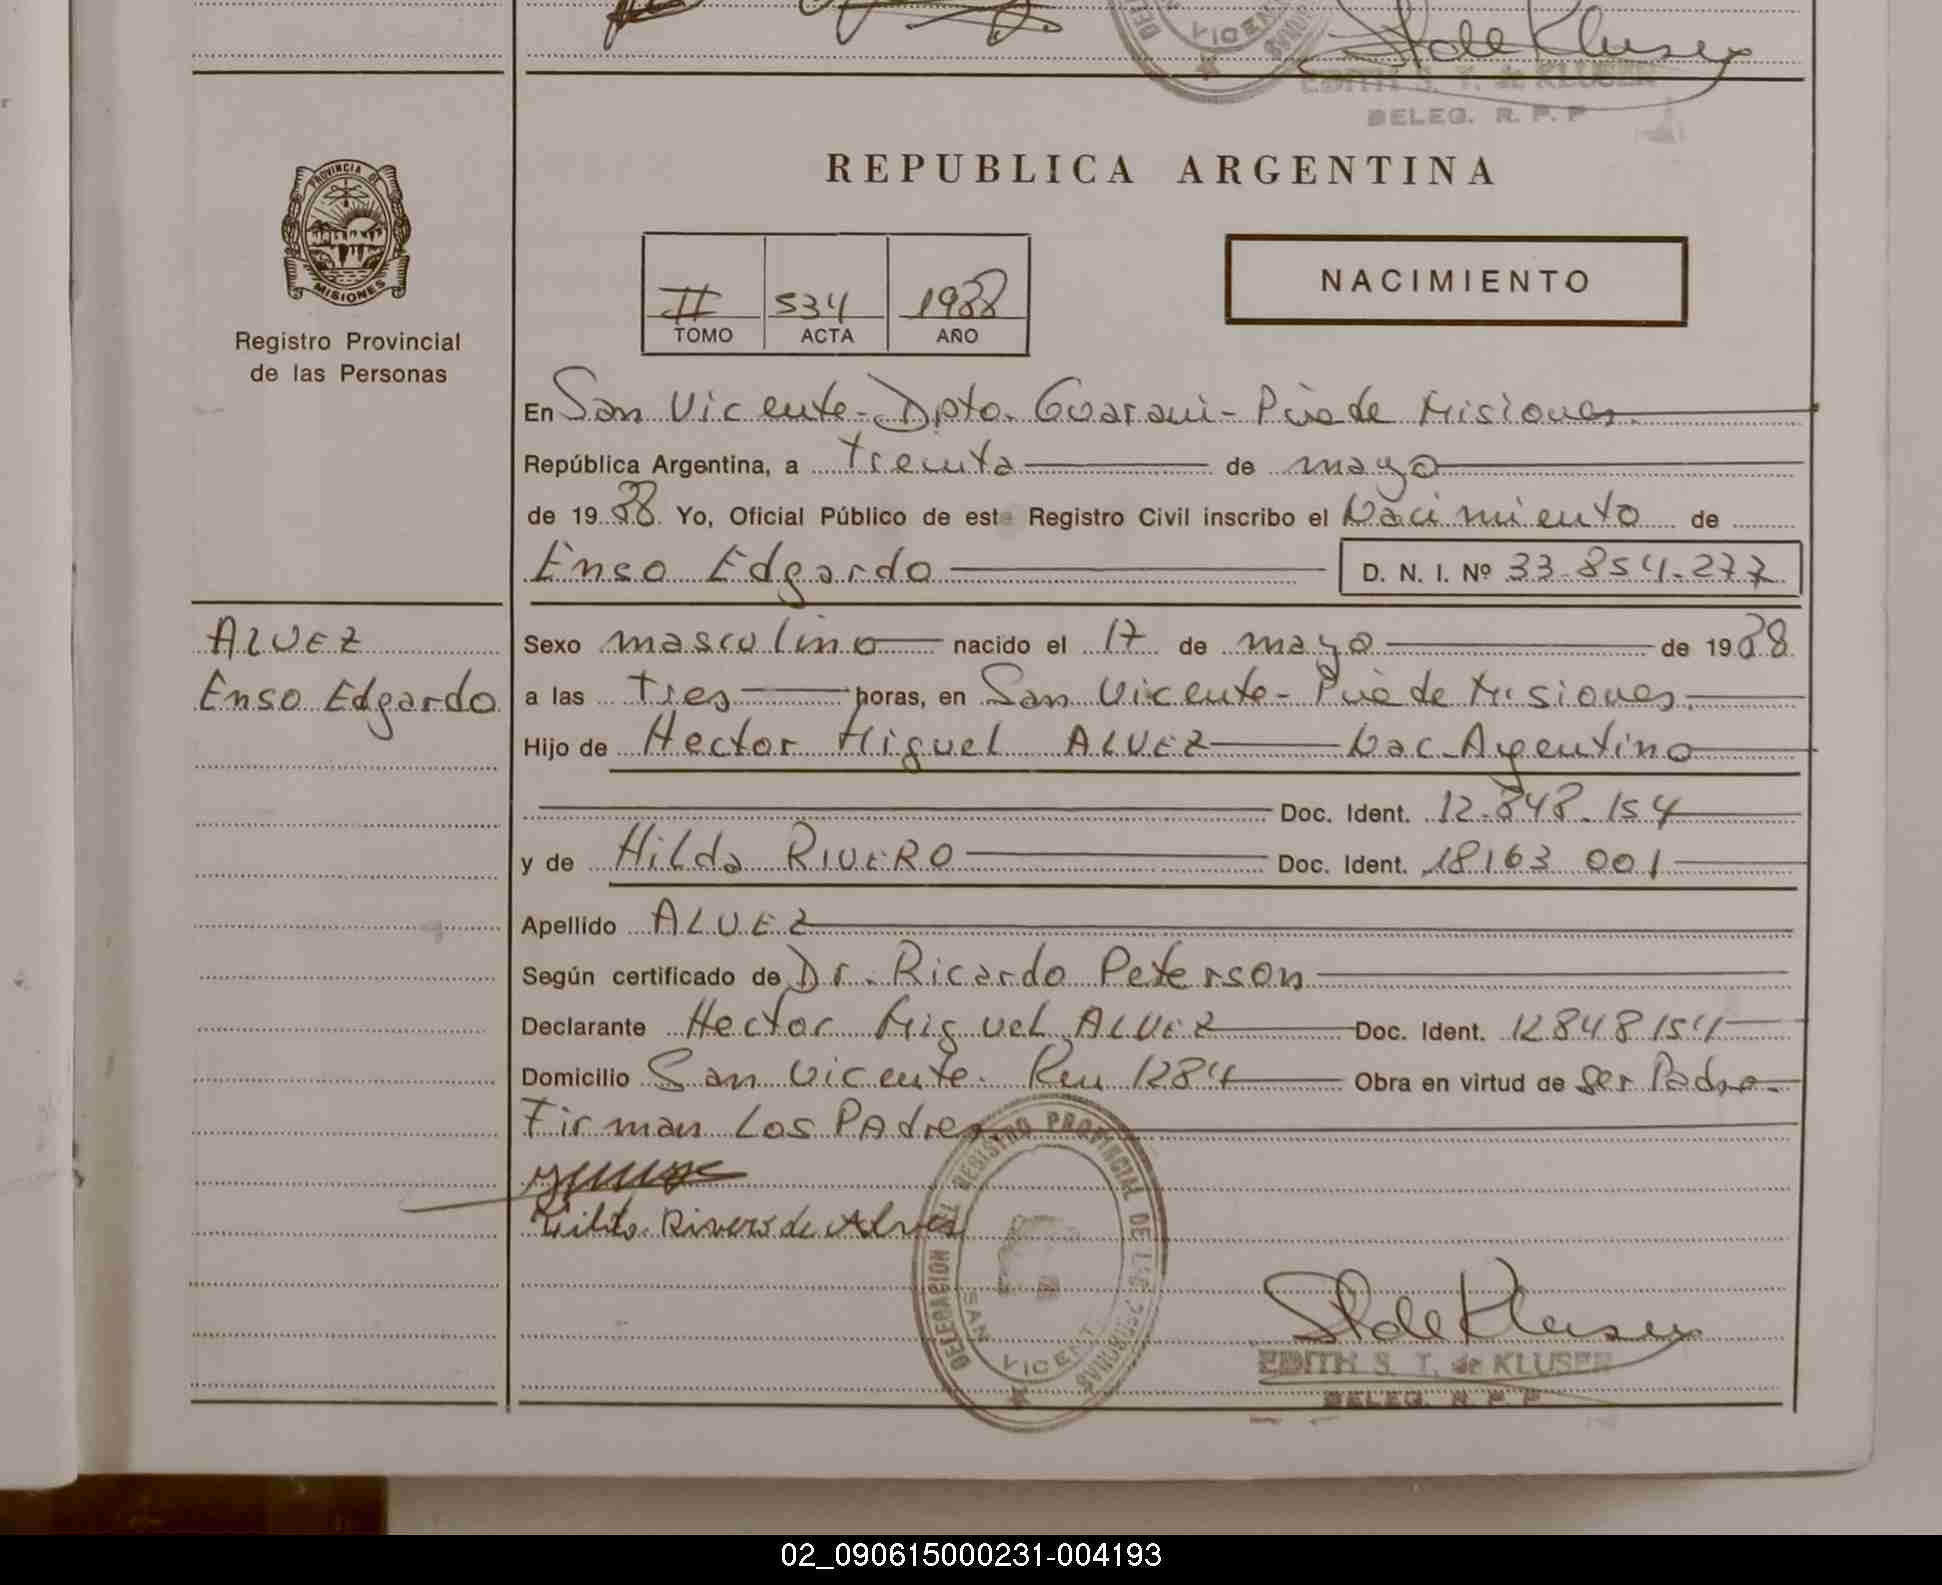 St de Kluser
EDITH S. T. de KLUSER
DELEG. R. P. P
VICEN
PROVINCIA DE
MISIONES
Registro Provincial
de las Personas
REPUBLICA ARGENTINA
II 534 1988
TOMO ACTA AÑO
NACIMIENTO
En San Vicente - Dpto. Guarani - Pcia de Misiones
República Argentina, a treinta de mayo
de 1988. Yo, Oficial Público de este Registro Civil inscribo el Nacimiento de
Enso Edgardo D. N. I. Nº 33.854.277
ALVEZ
Enso Edgardo
Sexo masculino nacido el 17 de mayo de 1988
a las tres horas, en San Vicente - Pcia de Misiones.
Hijo de Hector Miguel ALVEZ Nac. Argentino
Doc. Ident. 12.848.154
y de Hilda RIVERO Doc. Ident. 18163 001
Apellido ALVEZ
Según certificado de Dr. Ricardo Peterson
Declarante Hector Miguel ALVEZ Doc. Ident. 12848154
Domicilio San Vicente. Km 1284 Obra en virtud de ser Padre
Firman Los PAdres
Hilda Rivero de Alvez
DELEGACION DEL REGISTRO PROVINCIAL DE LAS PERSONAS
SAN VICENTE
St de Kluser
EDITH S. T. de KLUSER
DELEG. R. P. P
02_090615000231-004193